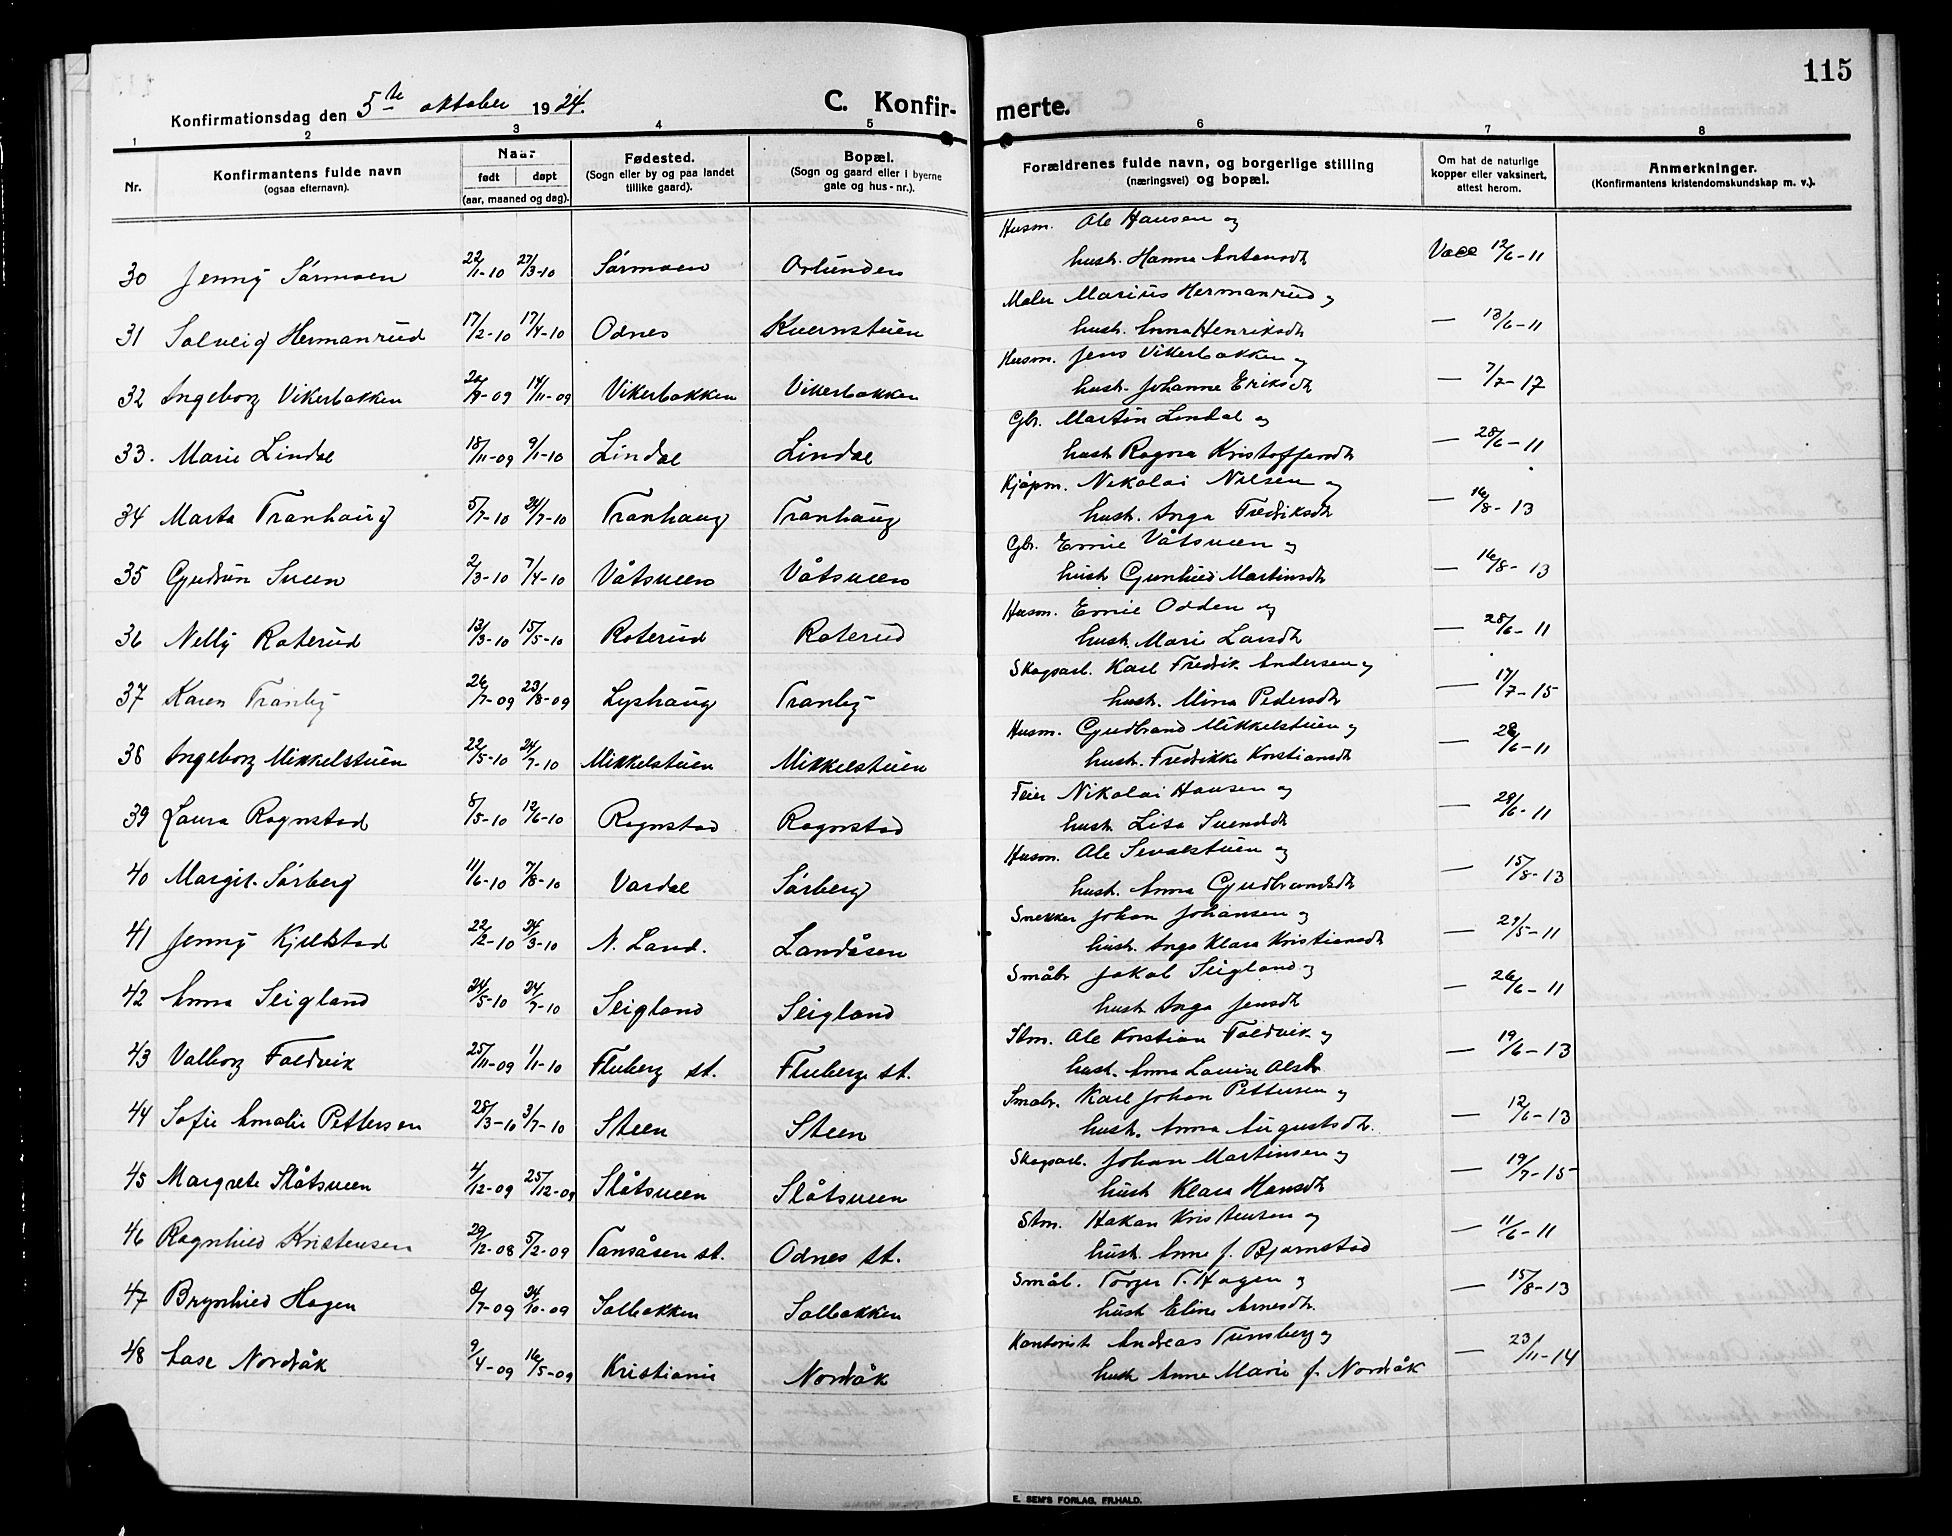 115
Konfirmationsdag den 5te oktober 1924.
C. Konfir-
merte.
1 2 3 4 5 6 7 8
Nr.
Konfirmantens fulde navn
(ogsaa efternavn).
Naar
født døpt
(aar, maaned og dag).
Fødested.
(Sogn eller by og paa landet
tillike gaard).
Bopæl.
(Sogn og gaard eller i byerne
gate og hus-nr.).
Forældrenes fulde navn, og borgerlige stilling
(næringsvei) og bopæl.
Om hat de naturlige
kopper eller vaksinert,
attest herom.
Anmerkninger.
(Konfirmantens kristendomskundskap m. v.).
Husm. Ole Hansen og
30 Jenny Sörmoen 22/1-10 27/3-10 Sörmoen Oslunden hust. Hanna Antonsdt Vacc 12/6-11
Maler Marius Hermanrud og
31 Solveig Hermanrud 17/2-10 17/4-10 Odnes Kvernstuen hust. Anna Henriksdt — 13/6-11
Husm. Jens Vikerbakken og
32 Ingeborg Vikerbakken 20/9-09 14/11-09 Vikerbakken Vikerbakken hust. Johanne Eriksdt — 7/7-17
Gbr. Martin Lindal og
33. Marie Lindal 18/11-09 9/1-10 Lindal Lindal hust Ragna Kristoffersdt — 28/6-11
Kjøpm. Nikolai Nilsen og
34 Marta Tranhaug 5/7-10 24/7-10 Tranhaug Tranhaug hust. Inga Fredriksdt — 16/8-13
Gbr. Emil Våtsveen og
35 Gudrun Sveen 2/3-10 7/4-10 Våtsveen Våtsveen hust Gunhild Martinsdt — 16/8-13
Husm. Emil Odden og
36 Nelly Roterud 13/3-10 15/5-10 Roterud Roterud hust. Mari Larsdt — 28/6-11
Skogsarb. Karl Fredrik Andersen og
37 Karen Tranby 26/7-09 23/8-09 Lyshaug Tranby hust. Mina Pedersdt — 17/7-15
Husm. Gudbrand Mikkelstuen og
38 Ingeborg Mikkelstuen 22/5-10 24/7-10 Mikkelstuen Mikkelstuen hust. Fredrikke Kristiansdt — 28/6-11
Feier Nikolai Hansen og
39 Laura Rognstad 8/5-10 12/6-10 Rognstad Rognstad hust Lisa Svendsdt — 28/6-11
Husm. Ole Sevalstuen og
40 Margit Sörberg 11/6-10 7/8-10 Vardal Sörberg hust. Anna Gudbrandsdt — 15/8-13
Snekker Johan Johansen og
41 Jenny Kjelstad 22/2-10 24/3-10 N. Land. Landåsen hust. Inga Klara Kristiansdt — 29/5-11
Småbr Jakob Seigland og
42 Anna Seigland 24/5-10 24/7-10 Seigland Seigland hust Inga Jensdt — 26/6-11
Stm. Ole Kristian Foldvik og
43 Valborg Foldvik 25/11-09 1/1-10 Fluberg st. Fluberg st. hust. Anna Louise Olsdt — 19/6-13
Smabr. Karl Johan Pettersen og
44 Sofie Amalie Pettersen 28/3-10 3/7-10 Steen Steen hust. Anna Augustsdt. — 12/6-13
Skogsarb. Johan Martinsen og
45 Margrete Slåtsveen 4/12-09 25/12-09 Slåtsveen Slåtsveen hust Klara Hansdt — 19/7-15
Stm. Hakan Kristensen og
46 Ragnhild Kristensen 29/12-08 5/2-09 Tonsåsen st. Odnes st. hust. Anne f. Bjørnstad — 11/6-11
Småb. Torger T. Hagen og
47 Brynhild Hagen 8/7-09 24/10-09 Solbakken Solbakken hust Eline Arnesdt. — 15/8-13
Kontorist Andreas Tunsberg og
48 Aase Nordråk 9/4-09 16/5-09 Kristiania Nordråk hust Anne Marie f. Nordråk — 23/11-14
E. SEM'S FORLAG, FR.HALD.